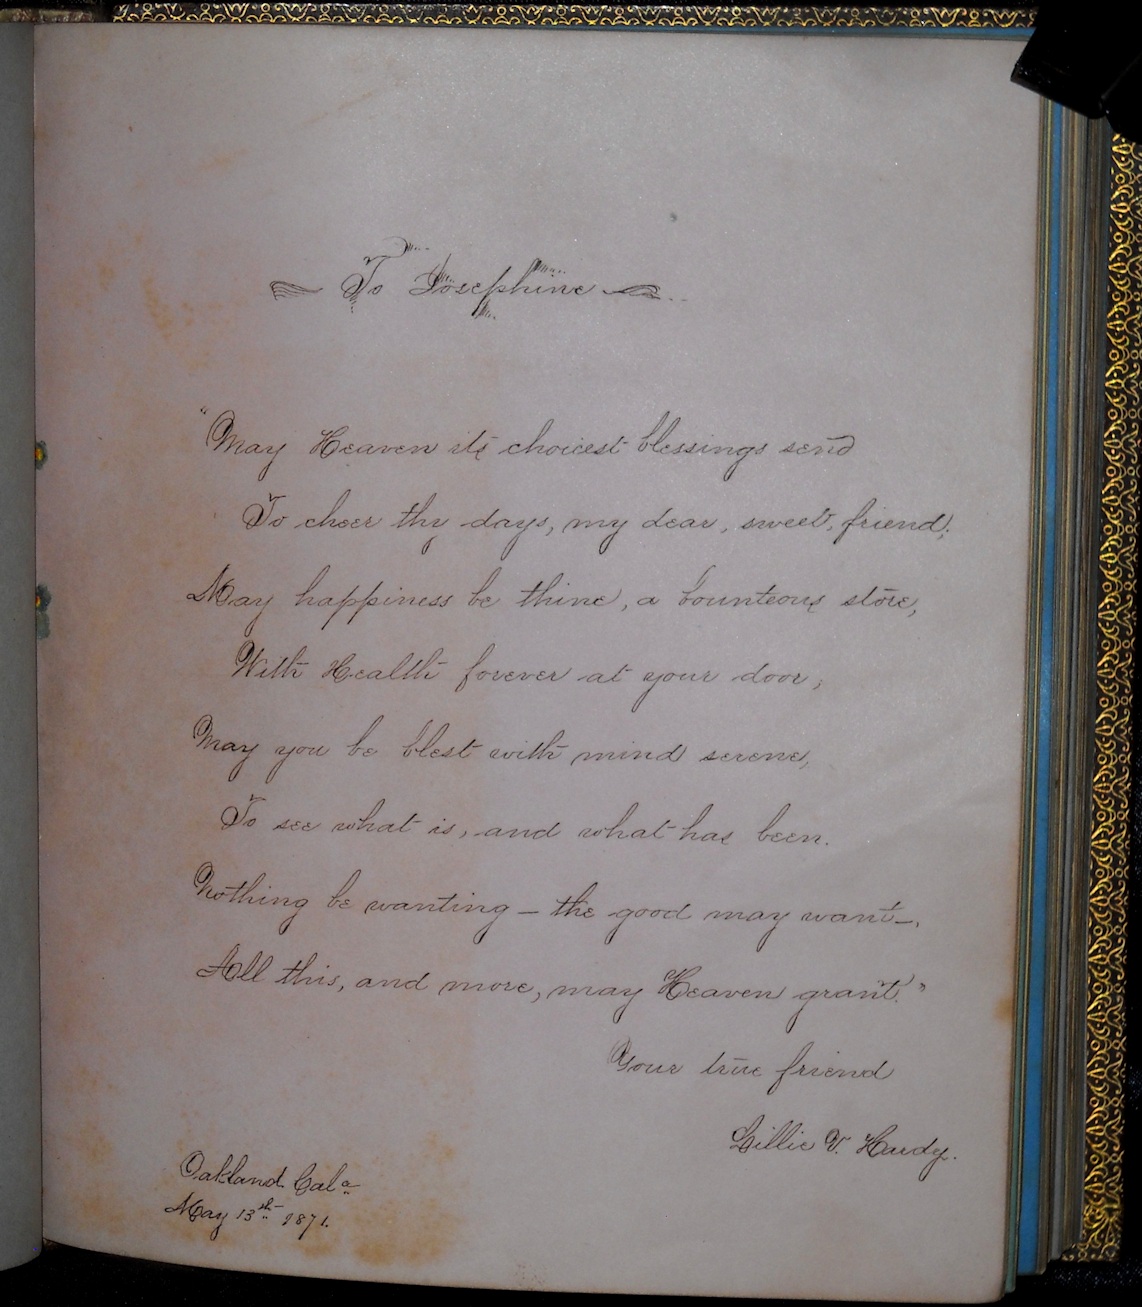 To Josephine
"May Heaven its choicest blessings send
To cheer thy days, my dear, sweet, friend;
May happiness be thine, a bounteous store,
With Health forever at your door;
May you be blest with mind serene,
To see what is, and what has been.
Nothing be wanting – the good may want –,
All this, and more, may Heaven grant."
Your true friend
Lillie V. Hardy.
Oakland Cala
May 13th 1871.